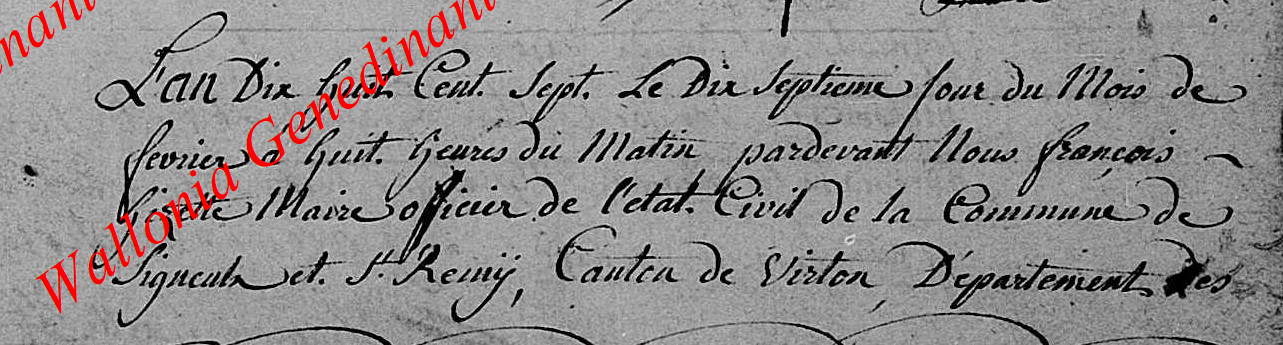 L'an Dix huit Cent Sept. Le Dix Septieme Jour du Mois de
fevrier à huit heures du Matin pardevant Nous françois
Maire officier de l'etat Civil de la Commune de
Signeulx et St. Remÿ, Canton de Virton, Département des
Wallonia Genedinant